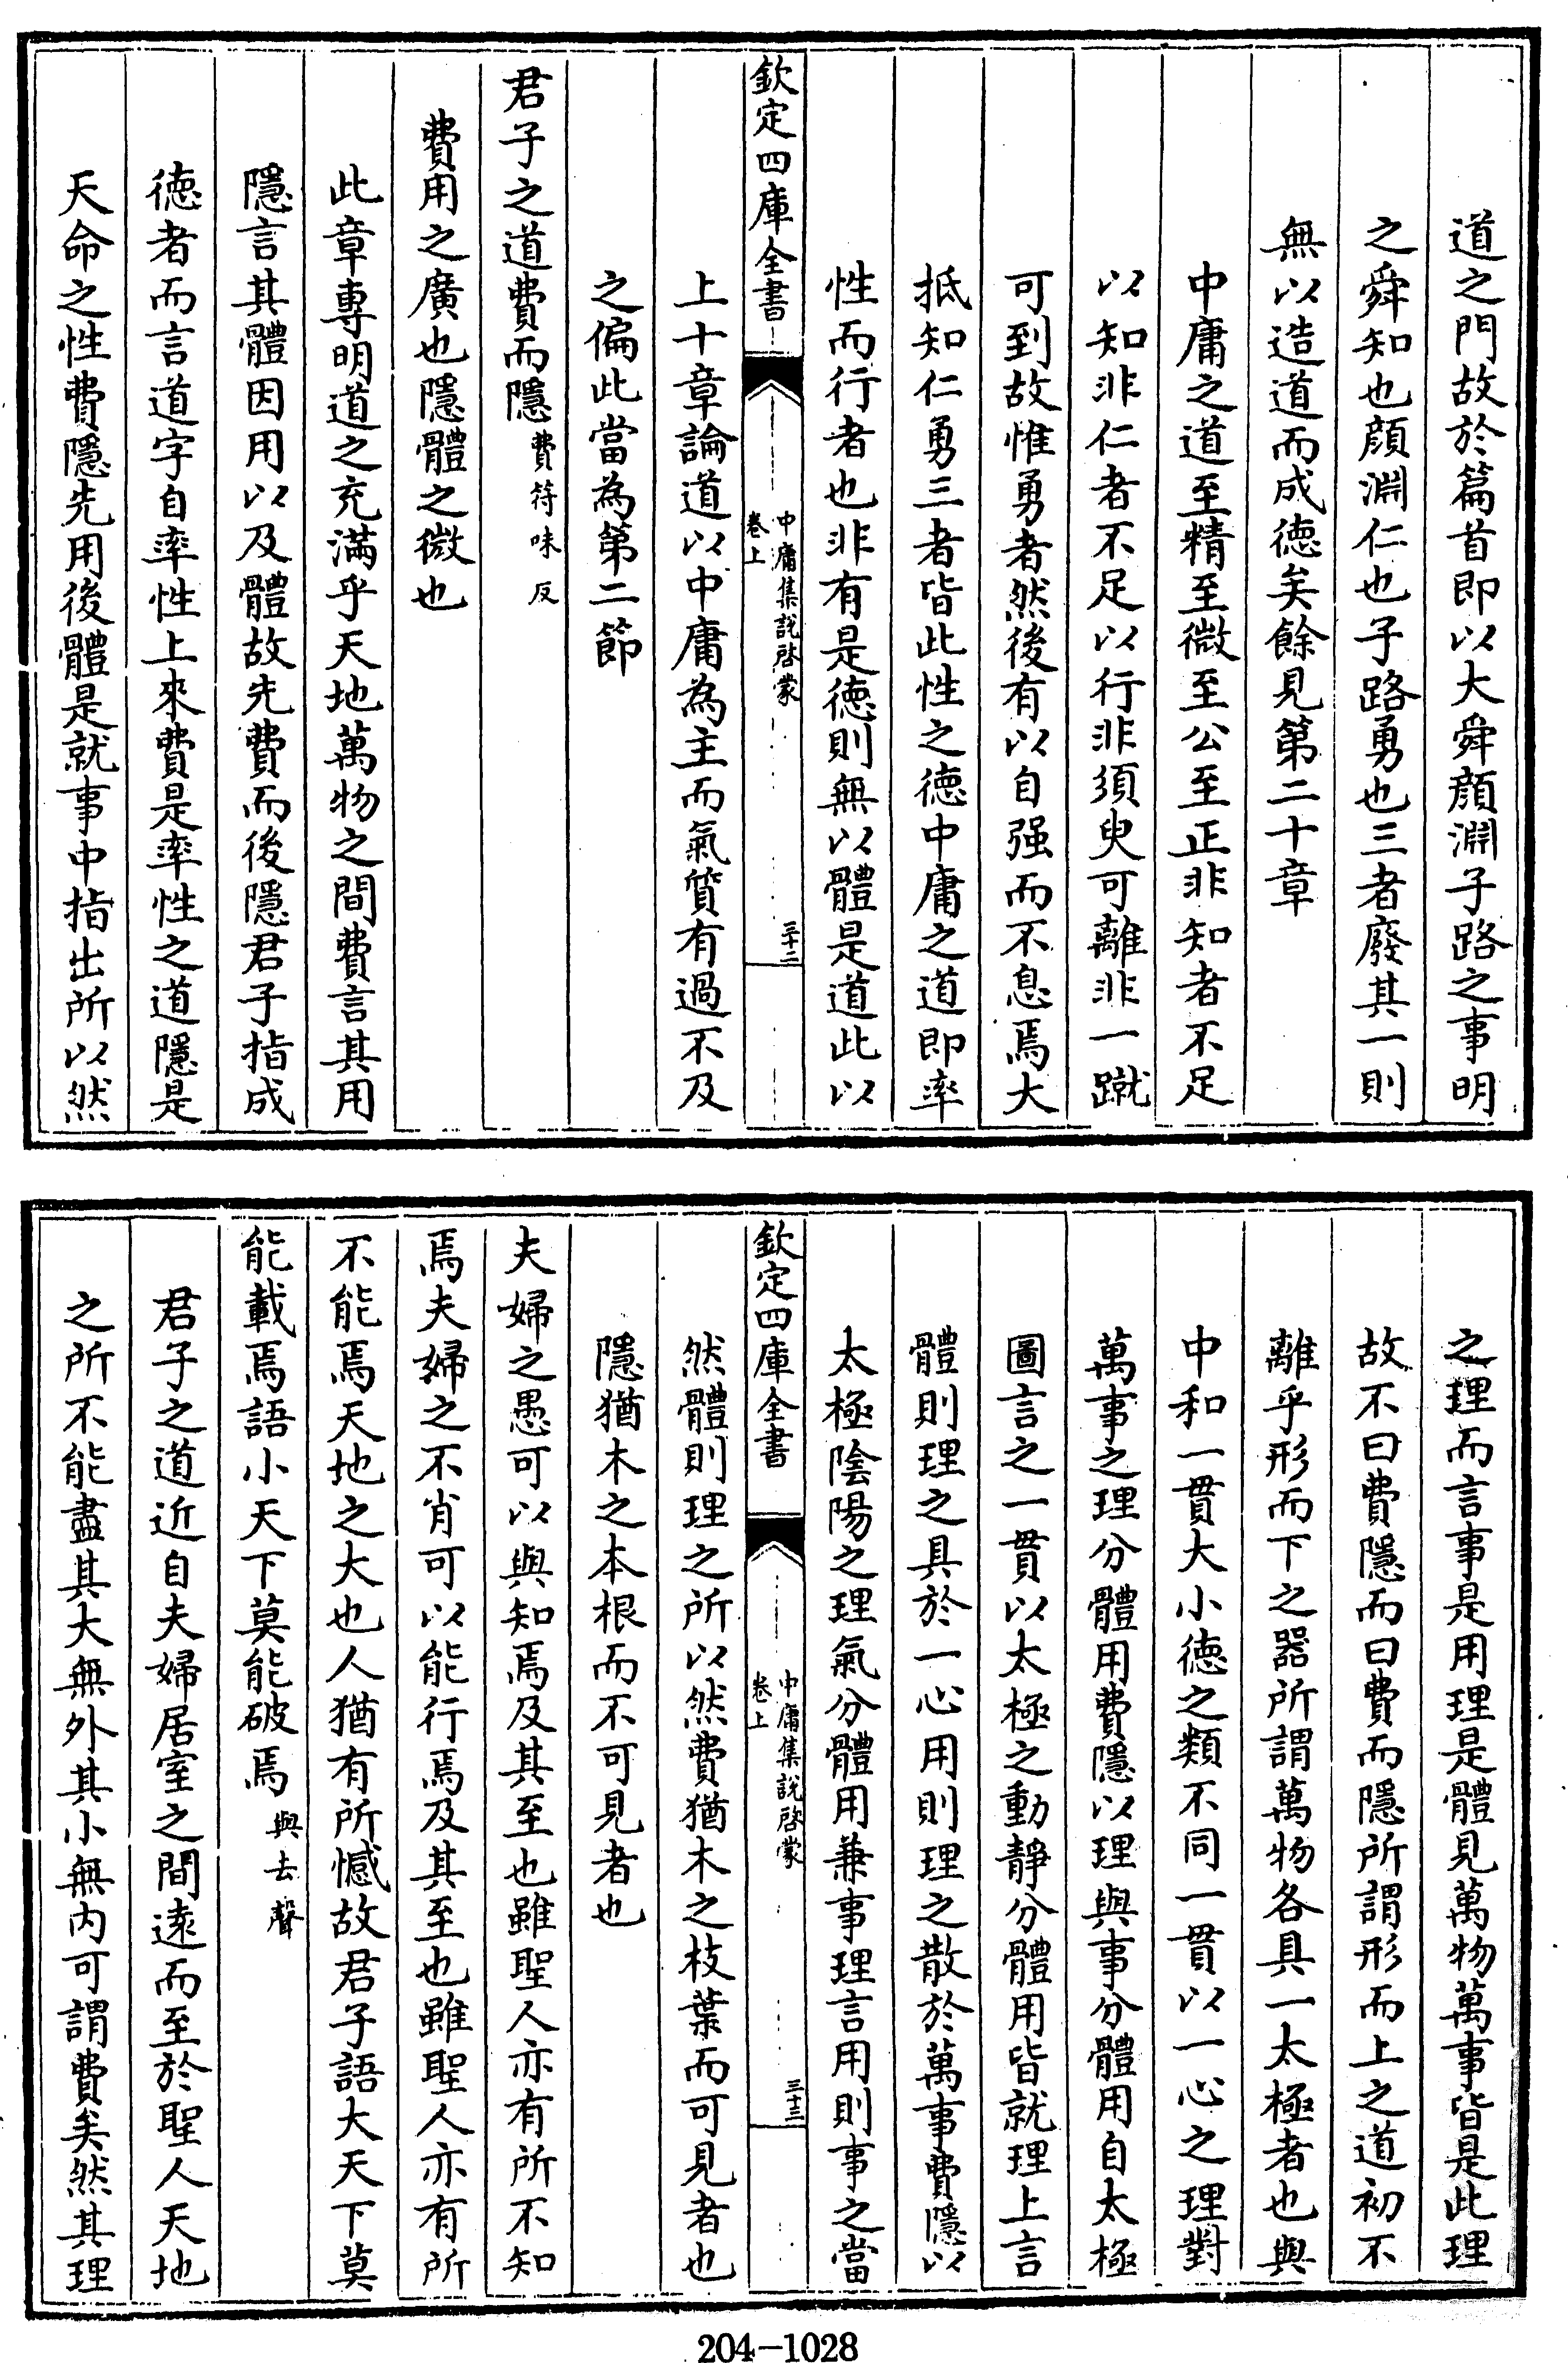 道之門故於篇首即以大舜顔淵子路之事明
之舜知也顔淵仁也子路勇也三者廢其一則
無以造道而成徳矣餘見第二十章
中庸之道至精至微至公至正非知者不足
以知非仁者不足以行非須臾可離非一蹴
可到故惟勇者然後有以自强而不息焉大
抵知仁勇三者皆此性之徳中庸之道即率
性而行者也非有是徳則無以體是道此以
欽定四庫全書
中庸集說啓蒙
卷上
三十二
上十章論道以中庸為主而氣質有過不及
之偏此當為第二節
君子之道費而隱費符味反
費用之廣也隱體之微也
此章專明道之充滿乎天地萬物之間費言其用
隱言其體因用以及體故先費而後隱君子指成
徳者而言道字自率性上來費是率性之道隱是
天命之性費隱先用後體是就事中指出所以然
之理而言事是用理是體見萬物萬事皆是此理
故不曰費隱而曰費而隱所謂形而上之道初不
離乎形而下之器所謂萬物各具一太極者也與
中和一貫大小徳之類不同一貫以一心之理對
萬事之理分體用費隱以理與事分體用自太極
圖言之一貫以太極之動靜分體用皆就理上言
體則理之具於一心用則理之散於萬事費隱以
太極陰陽之理氣分體用兼事理言用則事之當
欽定四庫全書
中庸集說啓蒙
卷上
三十三
然體則理之所以然費猶木之枝葉而可見者也
隱猶木之本根而不可見者也
夫婦之愚可以與知焉及其至也雖聖人亦有所不知
焉夫婦之不肖可以能行焉及其至也雖聖人亦有所
不能焉天地之大也人猶有所憾故君子語大天下莫
能載焉語小天下莫能破焉與去聲
君子之道近自夫婦居室之間遠而至於聖人天地
之所不能盡其大無外其小無内可謂費矣然其理
204-1028